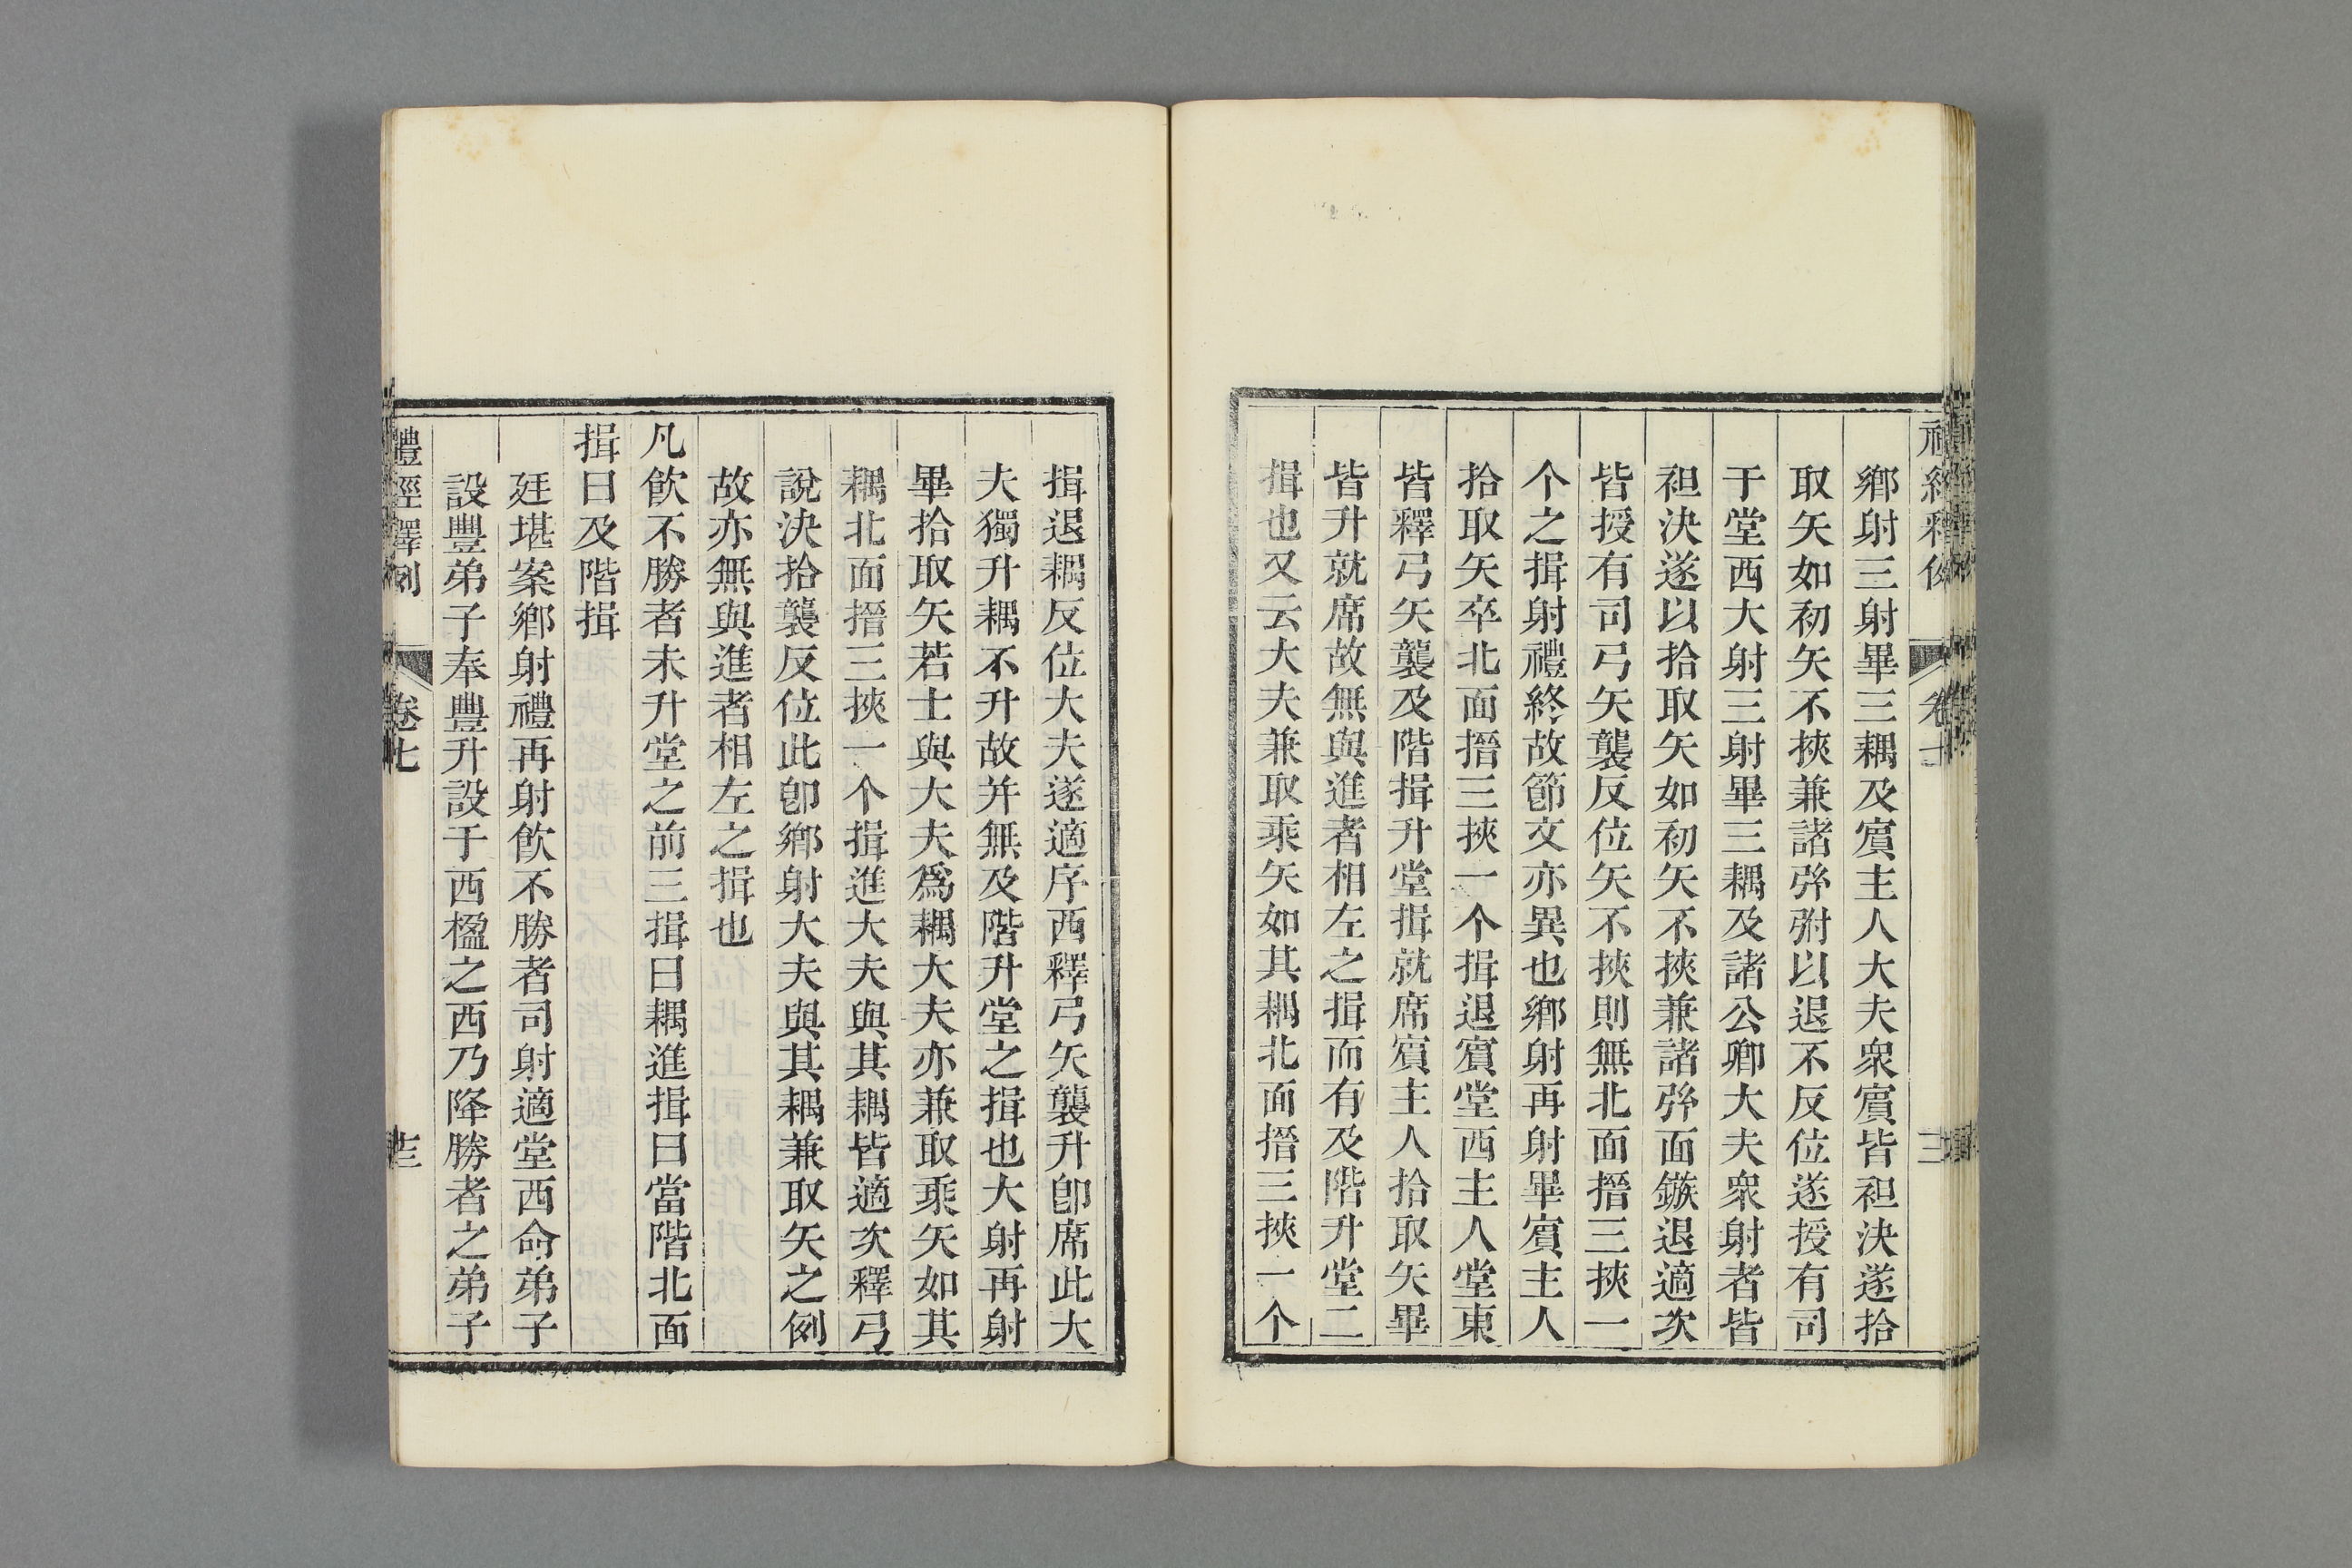 鄉射三射畢三耦及賔主人大夫衆賔皆袒決遂拾
取矢如初矢不挾兼諸弣弣以退不反位遂授有司
于堂西大射三射畢三耦及諸公卿大夫衆射者皆
袒決遂以拾取矢如初矢不挾兼諸弣面鏃退適次
皆授有司弓矢襲反位矢不挾則無北面搢三挾一
个之揖射禮終故節文亦異也鄉射再射畢賔主人
拾取矢卒北面搢三挾一个揖退賔堂西主人堂東
皆釋弓矢襲及階揖升堂揖就席賔主人拾取矢畢
皆升就席故無與進者相左之揖而有及階升堂二
揖也又云大夫兼取乘矢如其耦北面搢三挾一个
揖退耦反位大夫遂適序西釋弓矢襲升卽席此大
夫獨升耦不升故并無及階升堂之揖也大射再射
畢拾取矢若士與大夫爲耦大夫亦兼取乘矢如其
耦北面搢三挾一个揖進大夫與其耦皆適次釋弓
說決拾襲反位此卽鄉射大夫與其耦兼取矢之例
故亦無與進者相左之揖也
凡飮不勝者未升堂之前三揖曰耦進揖曰當階北面
揖曰及階揖
廷堪案鄉射禮再射飮不勝者司射適堂西命弟子
設豐弟子奉豐升設于西楹之西乃降勝者之弟子
禮經釋例 卷七